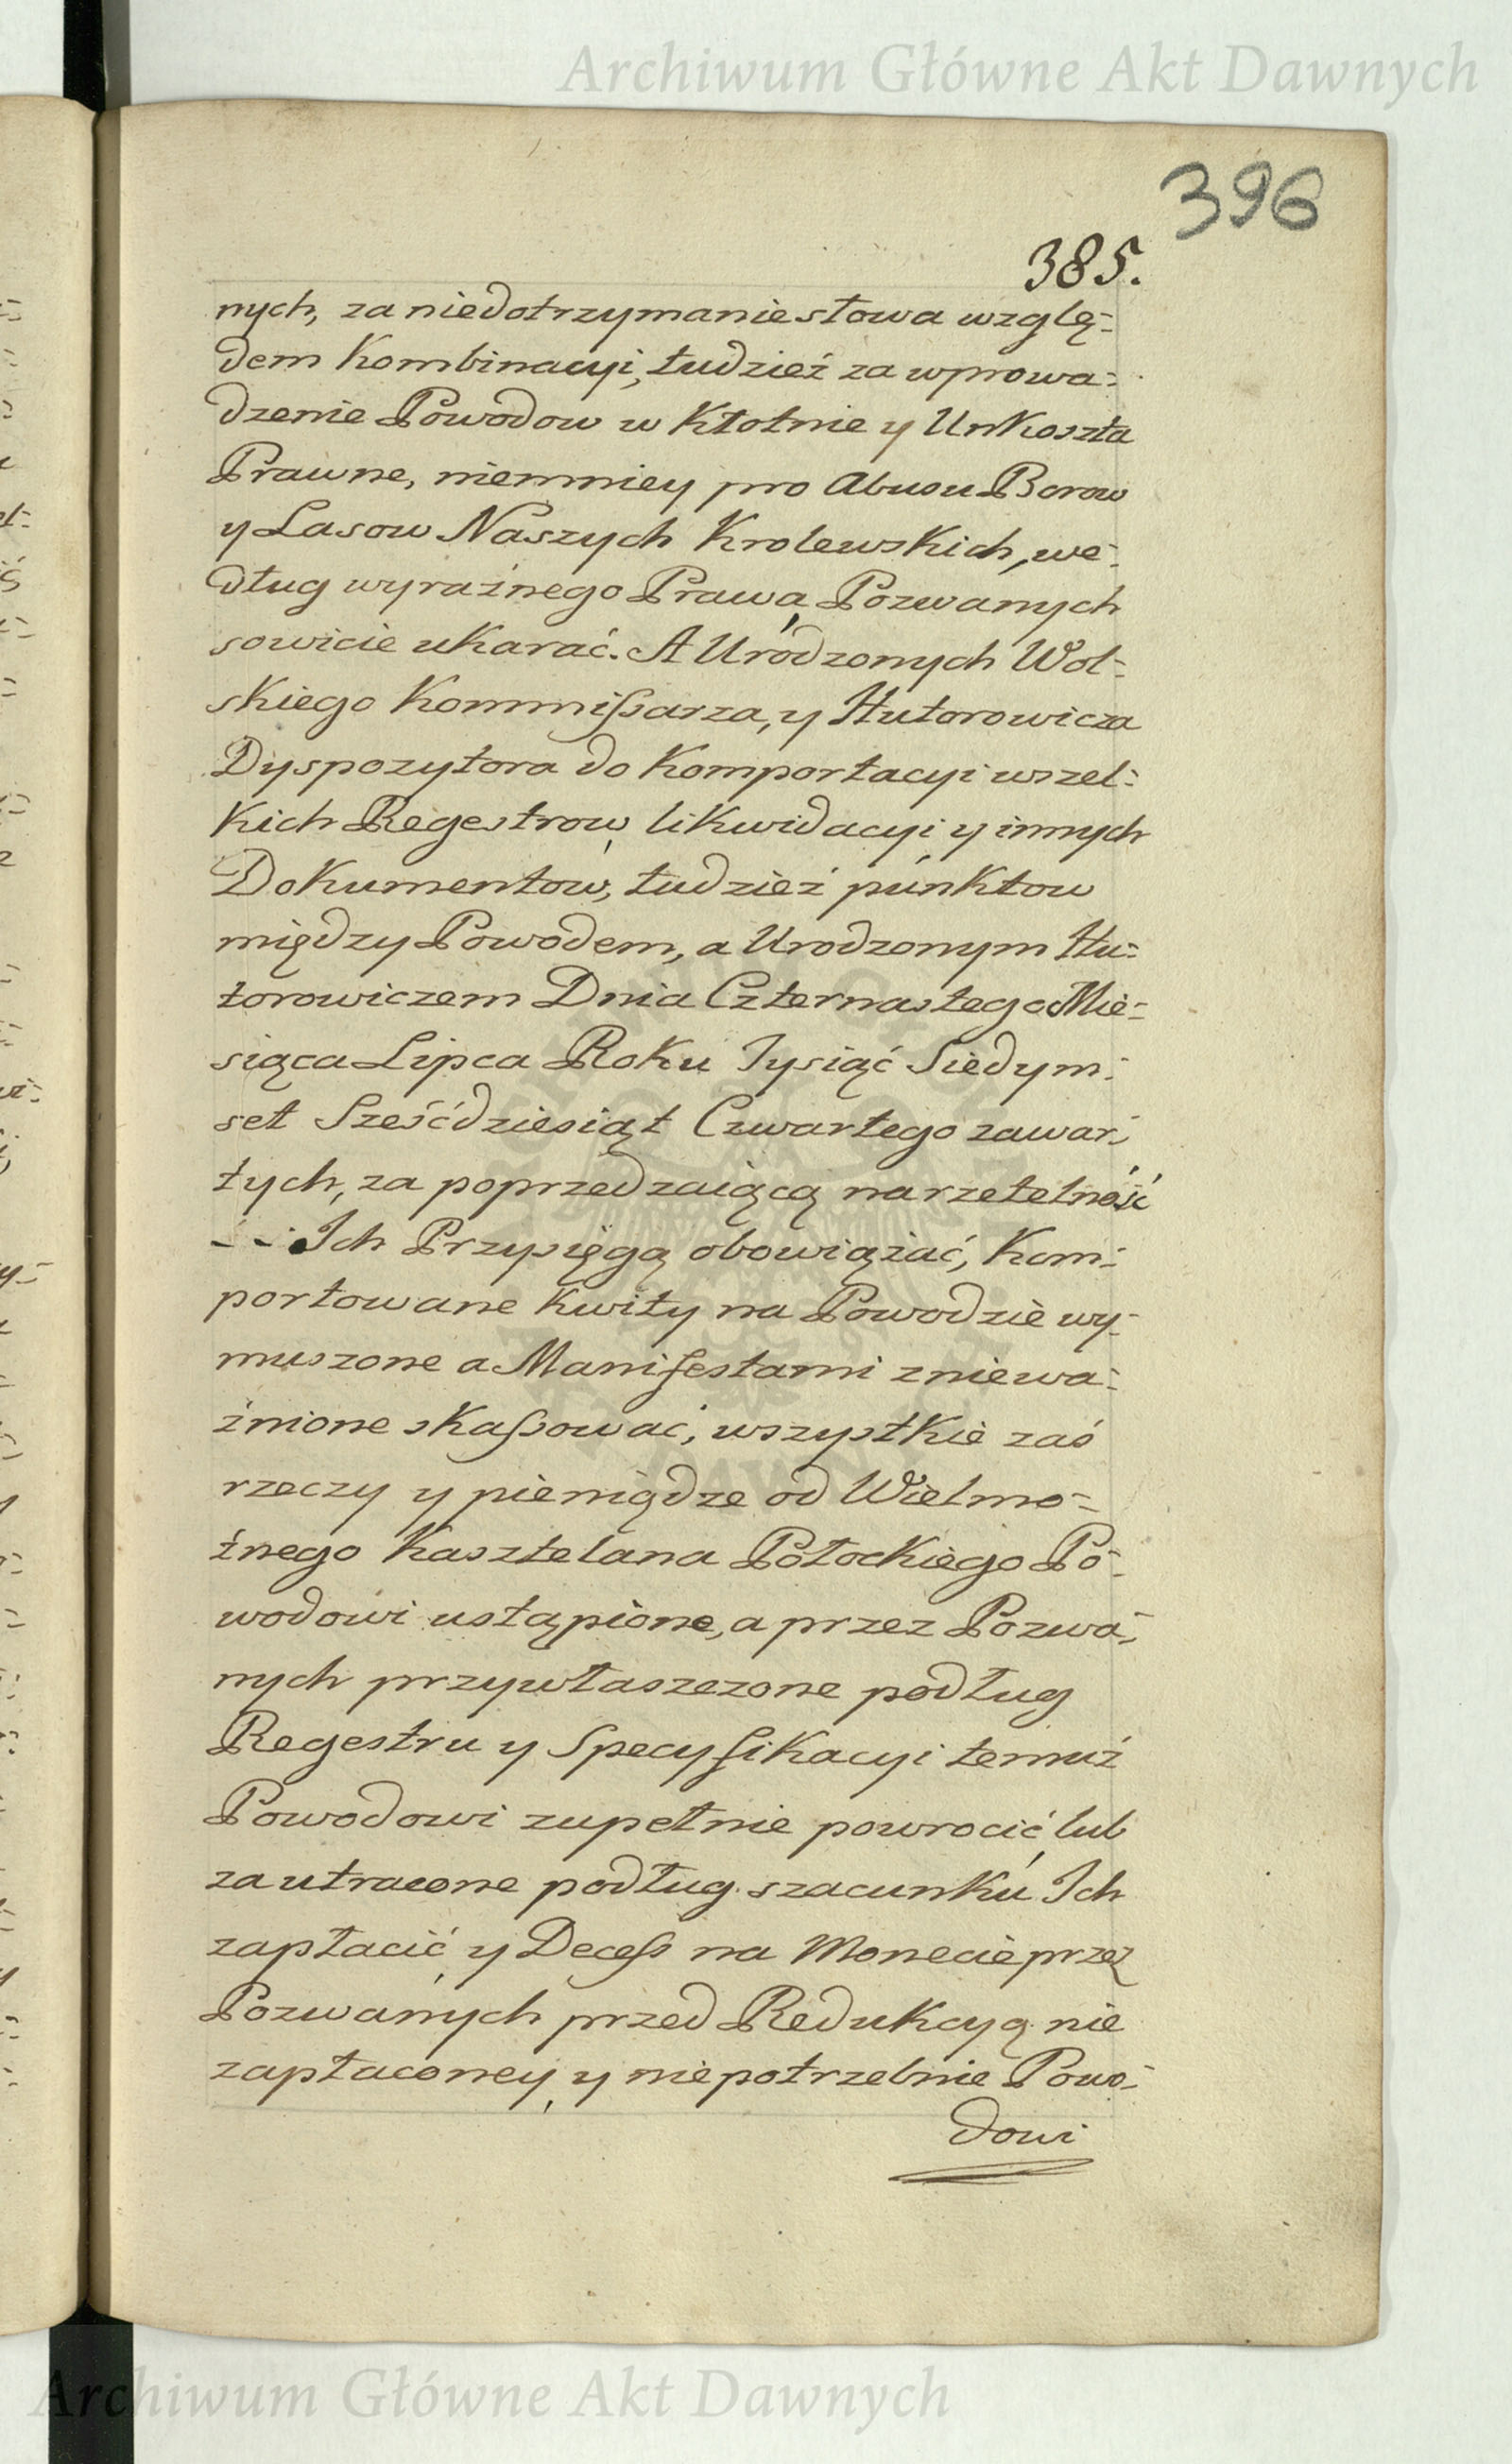 Archiwum Główne Akt Dawnych
396
385.
nych, za niedotrzymanie słowa wzglę-
dem Kombinacyi, tudzież za wprowa-
dzenie Powodow w Kłotnie y Unkoszta
Prawne, niemniey pro Abusu Borow
y Lasow Naszych Krolewskich, we-
dług wyraźnego Prawa Pozwanych
sowicie ukarać. A Urodzonych Wol-
skiego Kommissarza, y Hutorowicza
Dyspozytora do Komportacyi wszel-
kich Regestrow, likwidacyi y innych
Dokumentow, tudzież punktow
między Powodem, a Urodzonym Hu-
torowiczem Dnia Czternastego Mie-
siąca Lipca Roku Tysiąć Siedym-
set Sześćdziesiąt Czwartego zawar-
tych, za poprzedzaiącą na rzetelność
- - Ich Przysięgą obowiązać, Kom-
portowane Kwity na Powodzie wy-
muszone a Manifestami zniewa-
żnione skassować, wszystkie zaś
rzeczy y pieniądze od Wielmo-
żnego Kasztelana Potockiego Po-
wodowi ustąpione, a przez Pozwa-
nych przywłaszczone podług
Regestru y Specyfikacyi temuż
Powodowi zupełnie powrocić, lub
za utracone podług szacunku Ich
zapłacić, y Decess na Monecie przez
Pozwanych przed Redukcyą nie
zapłaconey, y niepotrzebnie Powo-
dowi
Archiwum Główne Akt Dawnych